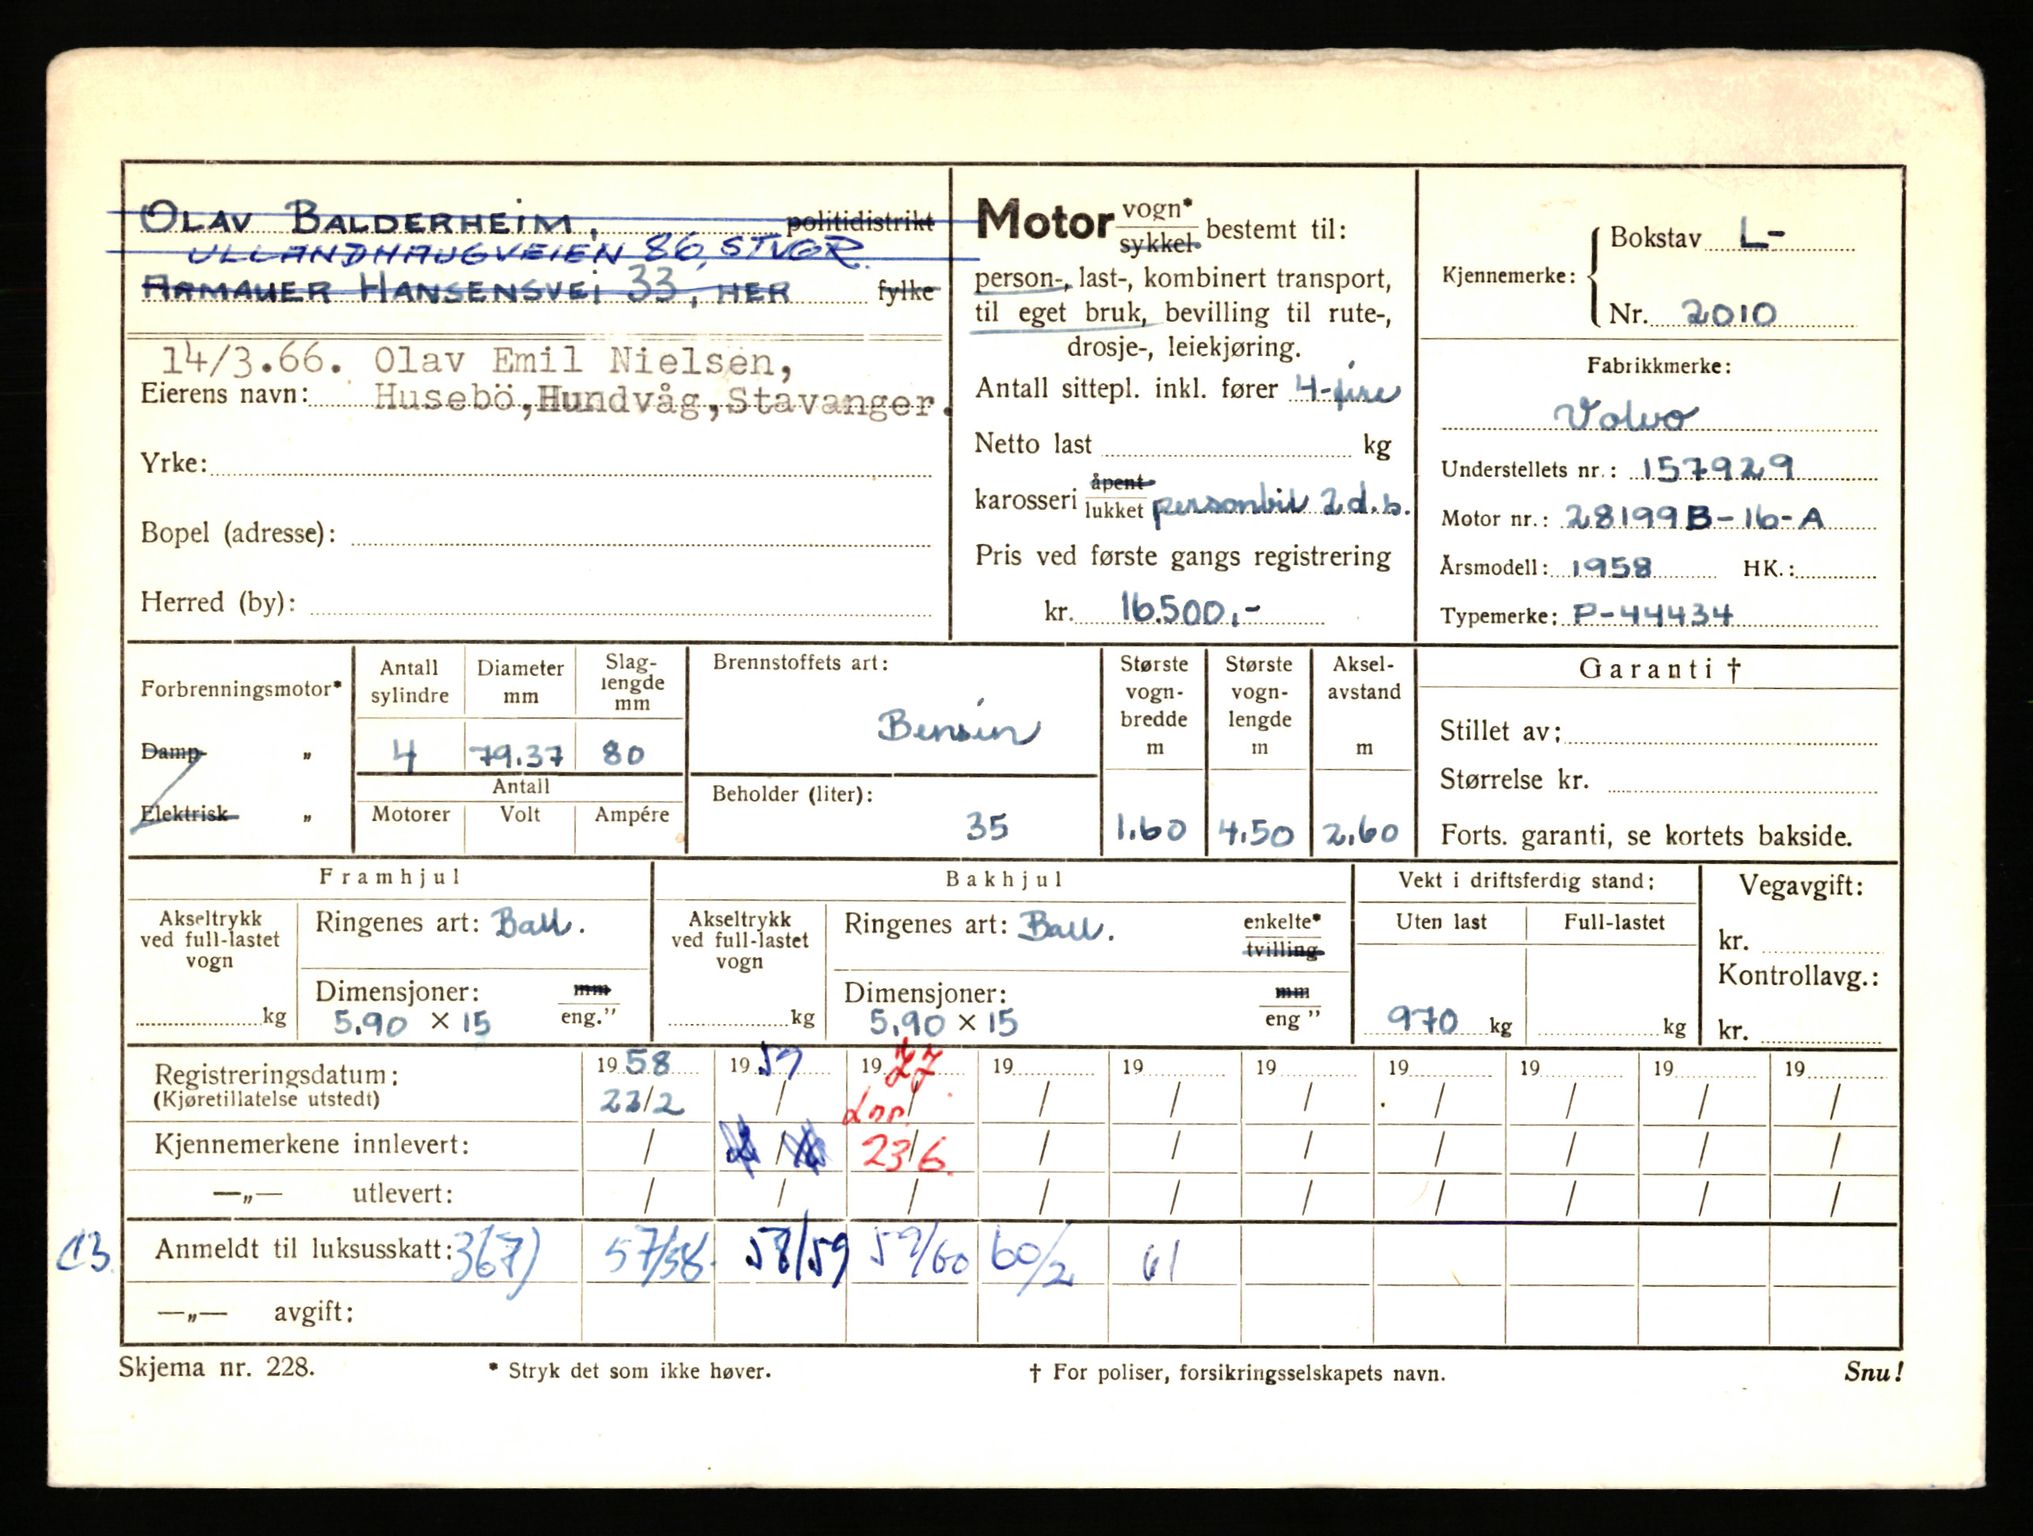 OLAV BALDERHEIM, politidistrikt
ULLANDHAUGVEIEN 86, STVGR.
ARMAUER HANSENSVEI 33, HER fylke
14/3.66. Olav Emil Nielsen,
Eierens navn: Husebö, Hundvåg, Stavanger.
Yrke:
Bopel (adresse):
Herred (by):
Motor vogn* sykkel bestemt til:
person-, last-, kombinert transport,
til eget bruk, bevilling til rute-,
drosje-, leiekjøring.
Antall sittepl. inkl. fører 4-fire
Netto last kg
karosseri åpent lukket personbil 2 d.b.
Pris ved første gangs registrering
kr. 16.500,-
Kjennemerke:
Bokstav L-
Nr. 2010
Fabrikkmerke:
Volvo
Understellets nr.: 157929
Motor nr.: 28199 B-16-A
Årsmodell: 1958 HK.:
Typemerke: P-44434
Forbrenningsmotor*
Damp "
Elektrisk "
Antall sylindre
4
Diameter mm
79.37
Slag-lengde mm
80
Antall
Motorer Volt Ampére
Brennstoffets art:
Bensin
Beholder (liter):
35
Største vogn-bredde m
1.60
Største vogn-lengde m
4.50
Aksel-avstand m
2.60
Garanti †
Stillet av:
Størrelse kr.
Forts. garanti, se kortets bakside.
Framhjul
Akseltrykk ved full-lastet vogn
kg
Ringenes art: Ball.
Dimensjoner: mm
5.90 × 15 eng."
Bakhjul
Akseltrykk ved full-lastet vogn
kg
Ringenes art: Ball. enkelte*
tvilling
Dimensjoner: mm
5.90 × 15 eng "
Vekt i driftsferdig stand:
Uten last Full-lastet
970 kg kg
Vegavgift:
kr.
Kontrollavg.:
kr.
Registreringsdatum: 1958 1959 1977 19 19 19 19 19 19 19
(Kjøretillatelse utstedt) / / / / / / / / /
Kjennemerkene innlevert: / / 23/6. / / / / / / /
—„— utlevert: / / / / / / / / / /
Anmeldt til luksusskatt: 367) 57/58. 58/59 59/60 60/2 61
—„— avgift:
Skjema nr. 228. * Stryk det som ikke høver. † For poliser, forsikringsselskapets navn. Snu!